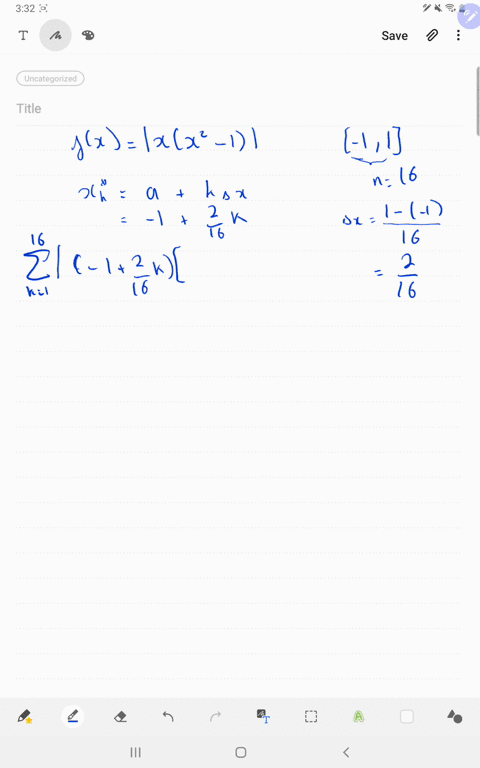 3:32
T Save
Uncategorized
Title
f(x) = |x(x² - 1)| [-1, 1]
n = 16
x*ₖ = a + kΔx
= -1 + 2/16 k
Δx = 1-(-1)/16
= 2/16
16 Σ k=1 |(-1 + 2/16 k)[